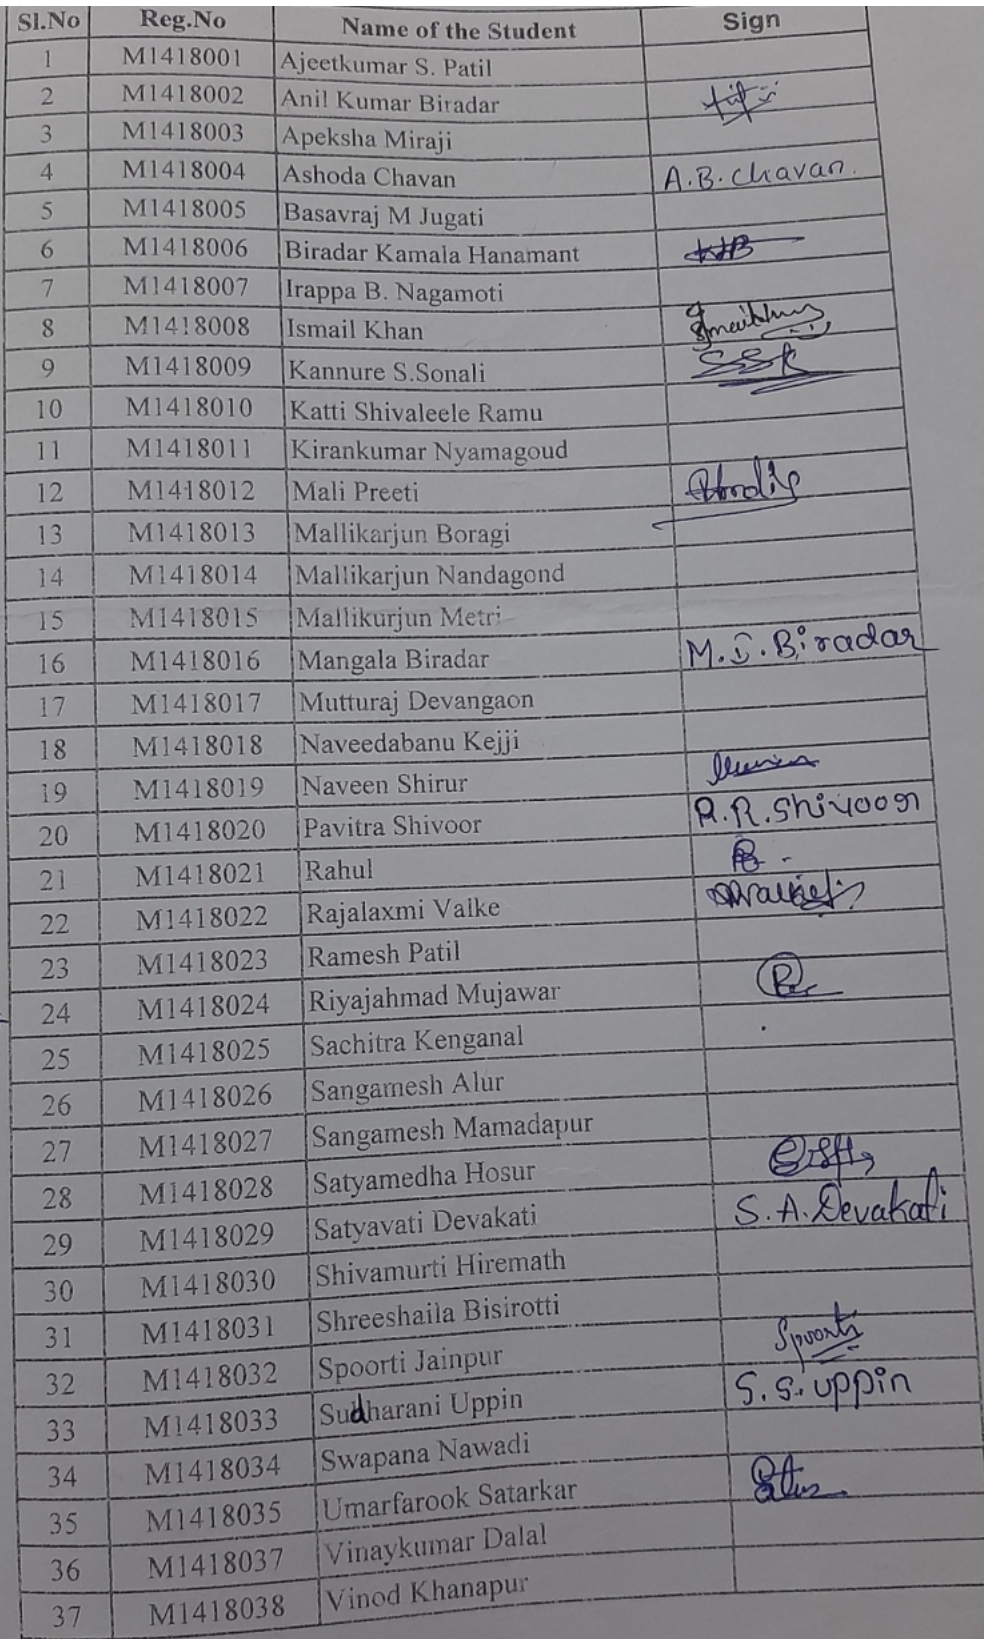 Sl.No Reg.No Name of the Student Sign
1 M1418001 Ajeetkumar S. Patil
2 M1418002 Anil Kumar Biradar
3 M1418003 Apeksha Miraji
4 M1418004 Ashoda Chavan A.B.Chavan.
5 M1418005 Basavraj M Jugati
6 M1418006 Biradar Kamala Hanamant
7 M1418007 Irappa B. Nagamoti
8 M1418008 Ismail Khan
9 M1418009 Kannure S.Sonali SSK
10 M1418010 Katti Shivaleele Ramu
11 M1418011 Kirankumar Nyamagoud
12 M1418012 Mali Preeti
13 M1418013 Mallikarjun Boragi
14 M1418014 Mallikarjun Nandagond
15 M1418015 Mallikurjun Metri
16 M1418016 Mangala Biradar M.S.Biradar
17 M1418017 Mutturaj Devangaon
18 M1418018 Naveedabanu Kejji
19 M1418019 Naveen Shirur
20 M1418020 Pavitra Shivoor P.R.Shivoor
21 M1418021 Rahul
22 M1418022 Rajalaxmi Valke
23 M1418023 Ramesh Patil
24 M1418024 Riyajahmad Mujawar
25 M1418025 Sachitra Kenganal
26 M1418026 Sangamesh Alur
27 M1418027 Sangamesh Mamadapur
28 M1418028 Satyamedha Hosur
29 M1418029 Satyavati Devakati S.A.Devakati
30 M1418030 Shivamurti Hiremath
31 M1418031 Shreeshaila Bisirotti
32 M1418032 Spoorti Jainpur Spoorti
33 M1418033 Sudharani Uppin S.S.Uppin
34 M1418034 Swapana Nawadi
35 M1418035 Umarfarook Satarkar
36 M1418037 Vinaykumar Dalal
37 M1418038 Vinod Khanapur